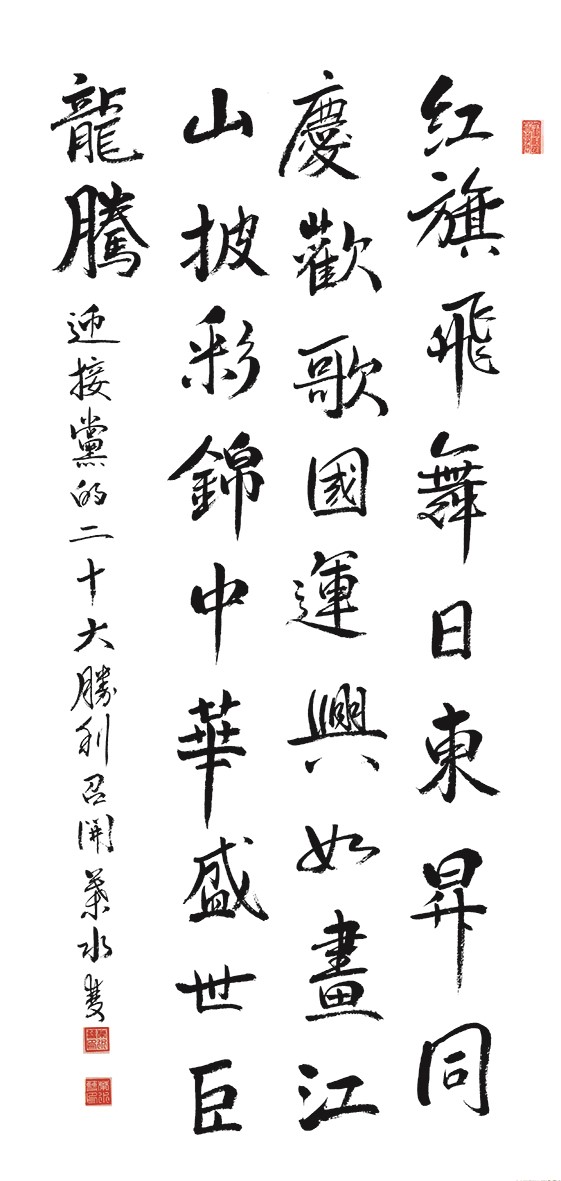 红旗飛舞日東昇同
慶歡歌國運興如畫江
山披彩錦中華盛世巨
龍騰
迎接黨的二十大勝利召開 葉水雙